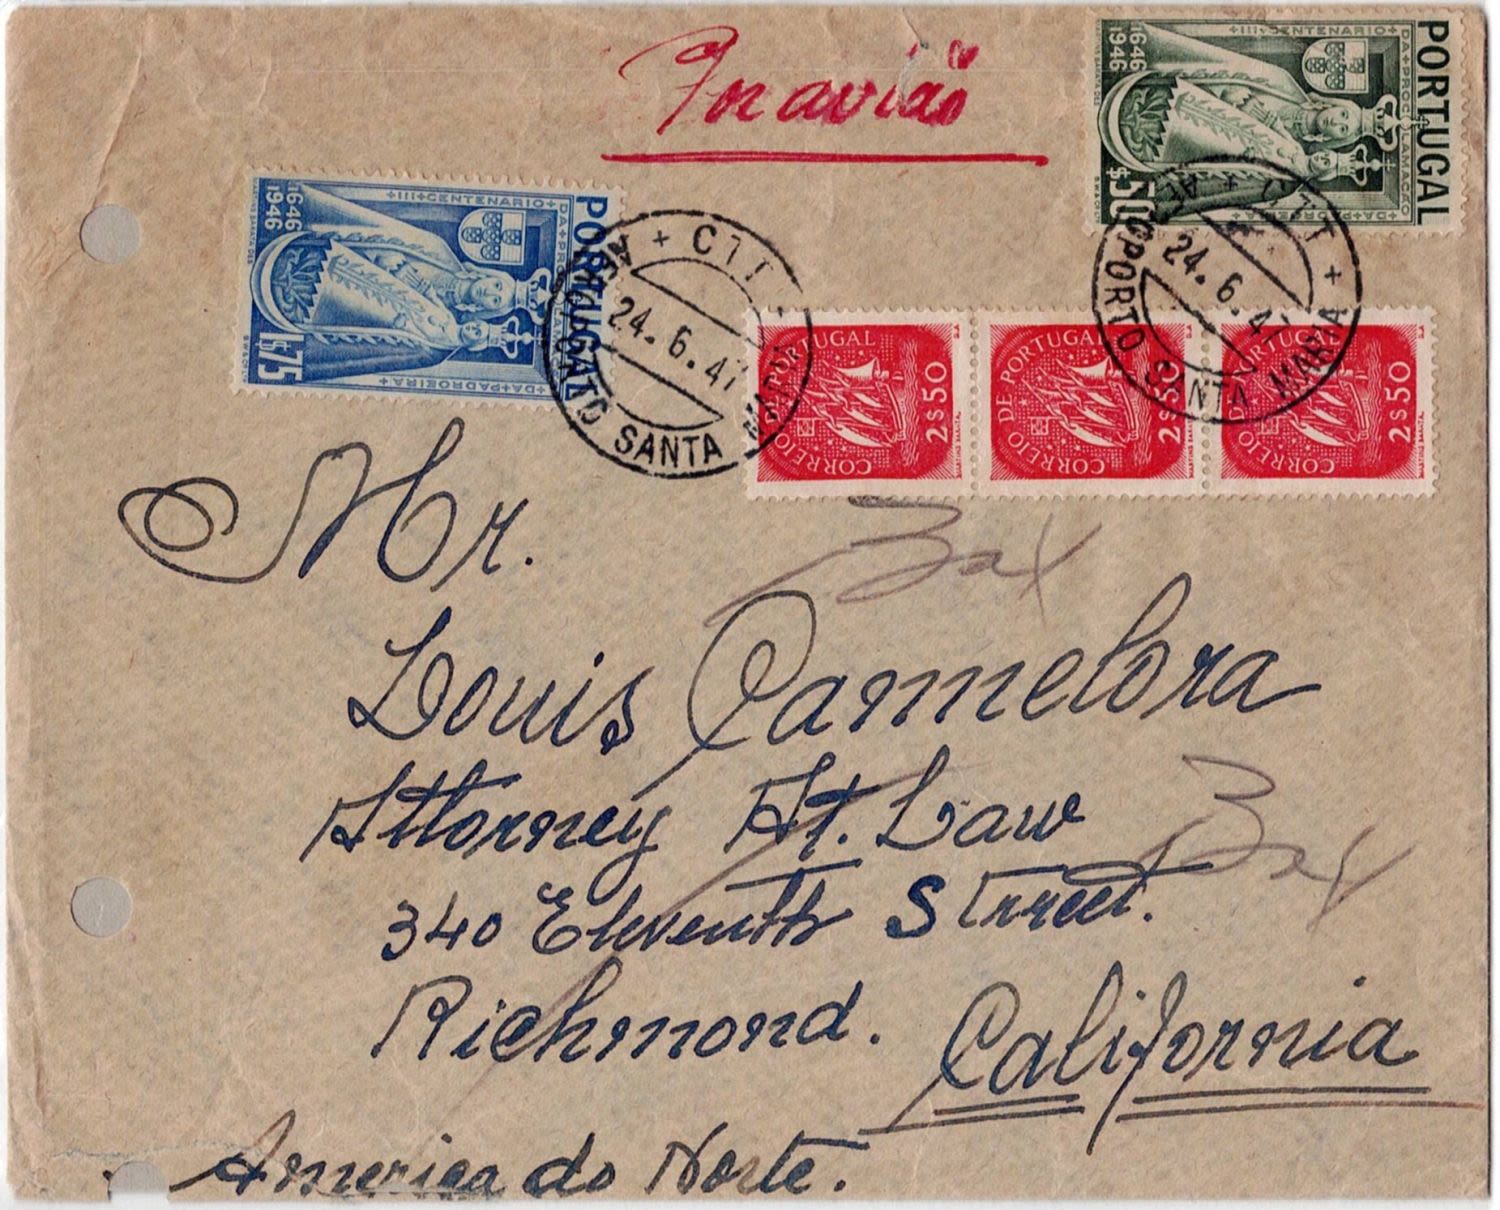 Por avião
PORTUGAL
+III+CENTENARIO+
DA+PROCLAMAÇÃO
+DA+PADROEIRA+
1646
1946
$50
PORTUGAL
+III+CENTENARIO+
DA+PROCLAMAÇÃO
+DA+PADROEIRA+
1646
1946
1$75
+ CTT +
AEROPORTO SANTA MARIA
24.6.47
+ CTT +
AEROPORTO SANTA MARIA
24.6.47
CORREIO DE PORTUGAL
2$50
CORREIO DE PORTUGAL
2$50
CORREIO DE PORTUGAL
2$50
Mr.
Bax
Louis Camelora
Attorney At. Law
Bax
340 Eleventh Street.
Richmond.
California
America do Norte.